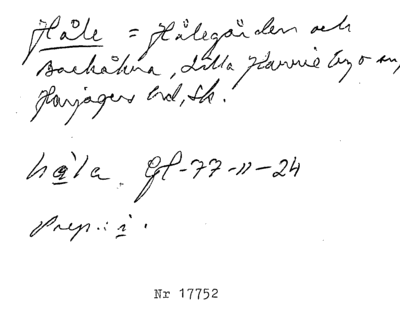 Håle = Hålegården och
Backåkra, Lilla Harrie
Harjagers hd, Sk.
håla Gl-77-11-24
Prep.: i.
Nr 17752